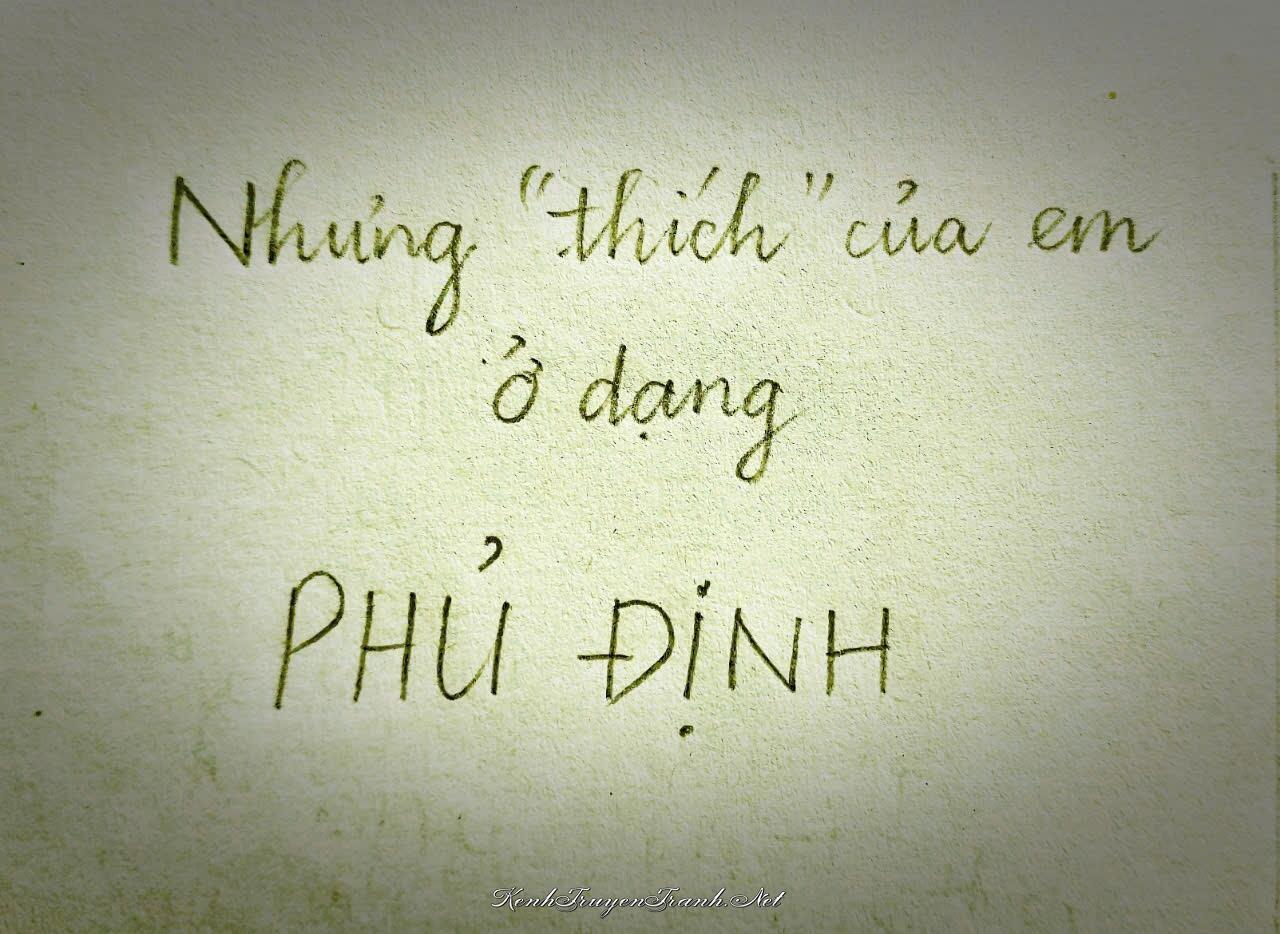 Nhưng "thích" của em
ở dạng
PHỦ ĐỊNH
KenhTruyenTranh.Net